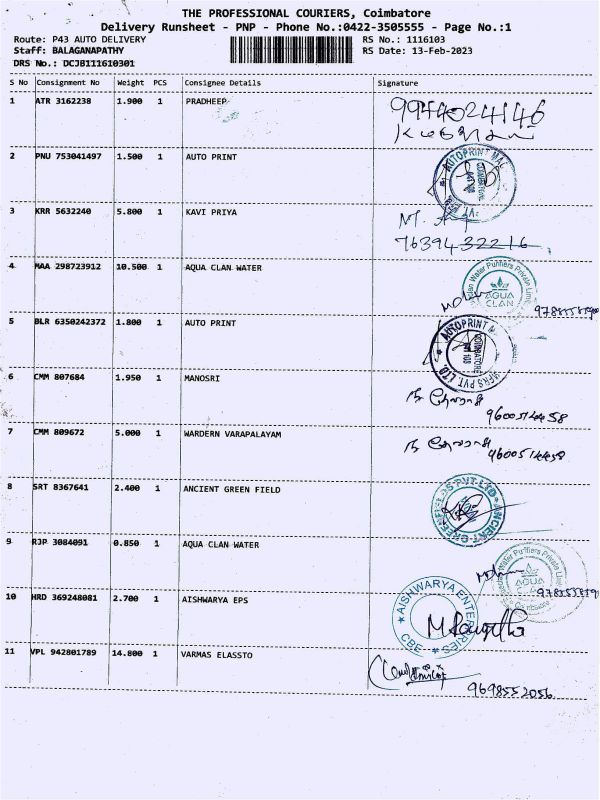 THE PROFESSIONAL COURIERS, Coimbatore
Delivery Runsheet - PNP - Phone No.:0422-3505555 - Page No.:1
Route: P43 AUTO DELIVERY RS No.: 1116103
Staff: BALAGANAPATHY RS Date: 13-Feb-2023
DRS No.: DCJB111610301
S No Consignment No Weight PCS Consignee Details Signature
1 ATR 3162238 1.900 1 PRADHEEP 9944024146
2 PNU 753041497 1.500 1 AUTO PRINT
AUTOPRINT
COIMBATORE
3 KRR 5632240 5.800 1 KAVI PRIYA
7639432216
4 MAA 298723912 10.500 1 AQUA CLAN WATER
Water Purifiers Private
AQUA
CLAN
5 BLR 6350242372 1.800 1 AUTO PRINT
AUTOPRINT
COIMBATORE
PVT LTD.
6 CMM 807684 1.950 1 MANOSRI
9600514458
7 CMM 809672 5.000 1 WARDERN VARAPALAYAM
9600514458
8 SRT 8367641 2.400 1 ANCIENT GREEN FIELD
ANCIENT GREEN FIELDS PVT LTD
9 RJP 3084091 0.850 1 AQUA CLAN WATER
Water Purifiers Private
AQUA
Coimbatore
10 HRD 369248081 2.700 1 AISHWARYA EPS
AISHWARYA ENTERPRISES
CBE
11 VPL 942801789 14.800 1 VARMAS ELASSTO
9698552056